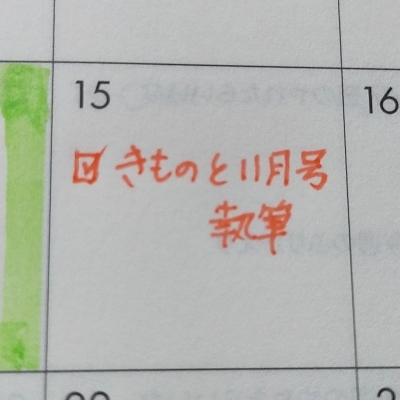 15
16
☑ きものと11月号
執筆